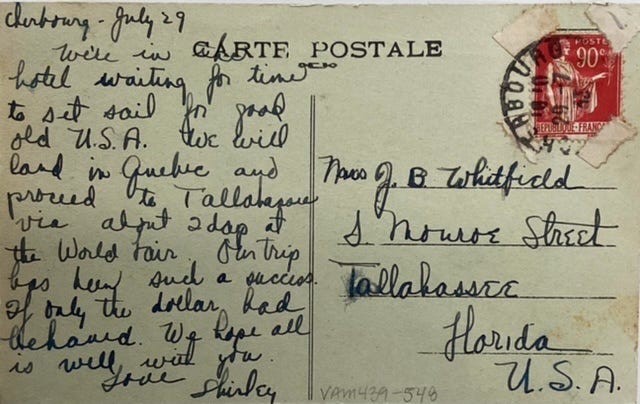 Cherbourg - July 29
We're in the
hotel waiting for time
to set sail for good
old U.S.A. We will
land in Quebec and
proceed to Tallahassee
via about 2 days at
the World Fair. Our trip
has been such a success.
If only the dollar had
behaved. We hope all
is well with you.
Love
Shirley
CARTE POSTALE
POSTES
90c
REPUBLIQUE-FRANC
CHERBOURG
J. B. Whitfield
S. Monroe Street
Tallahassee
Florida
U.S.A.
VAM439-548